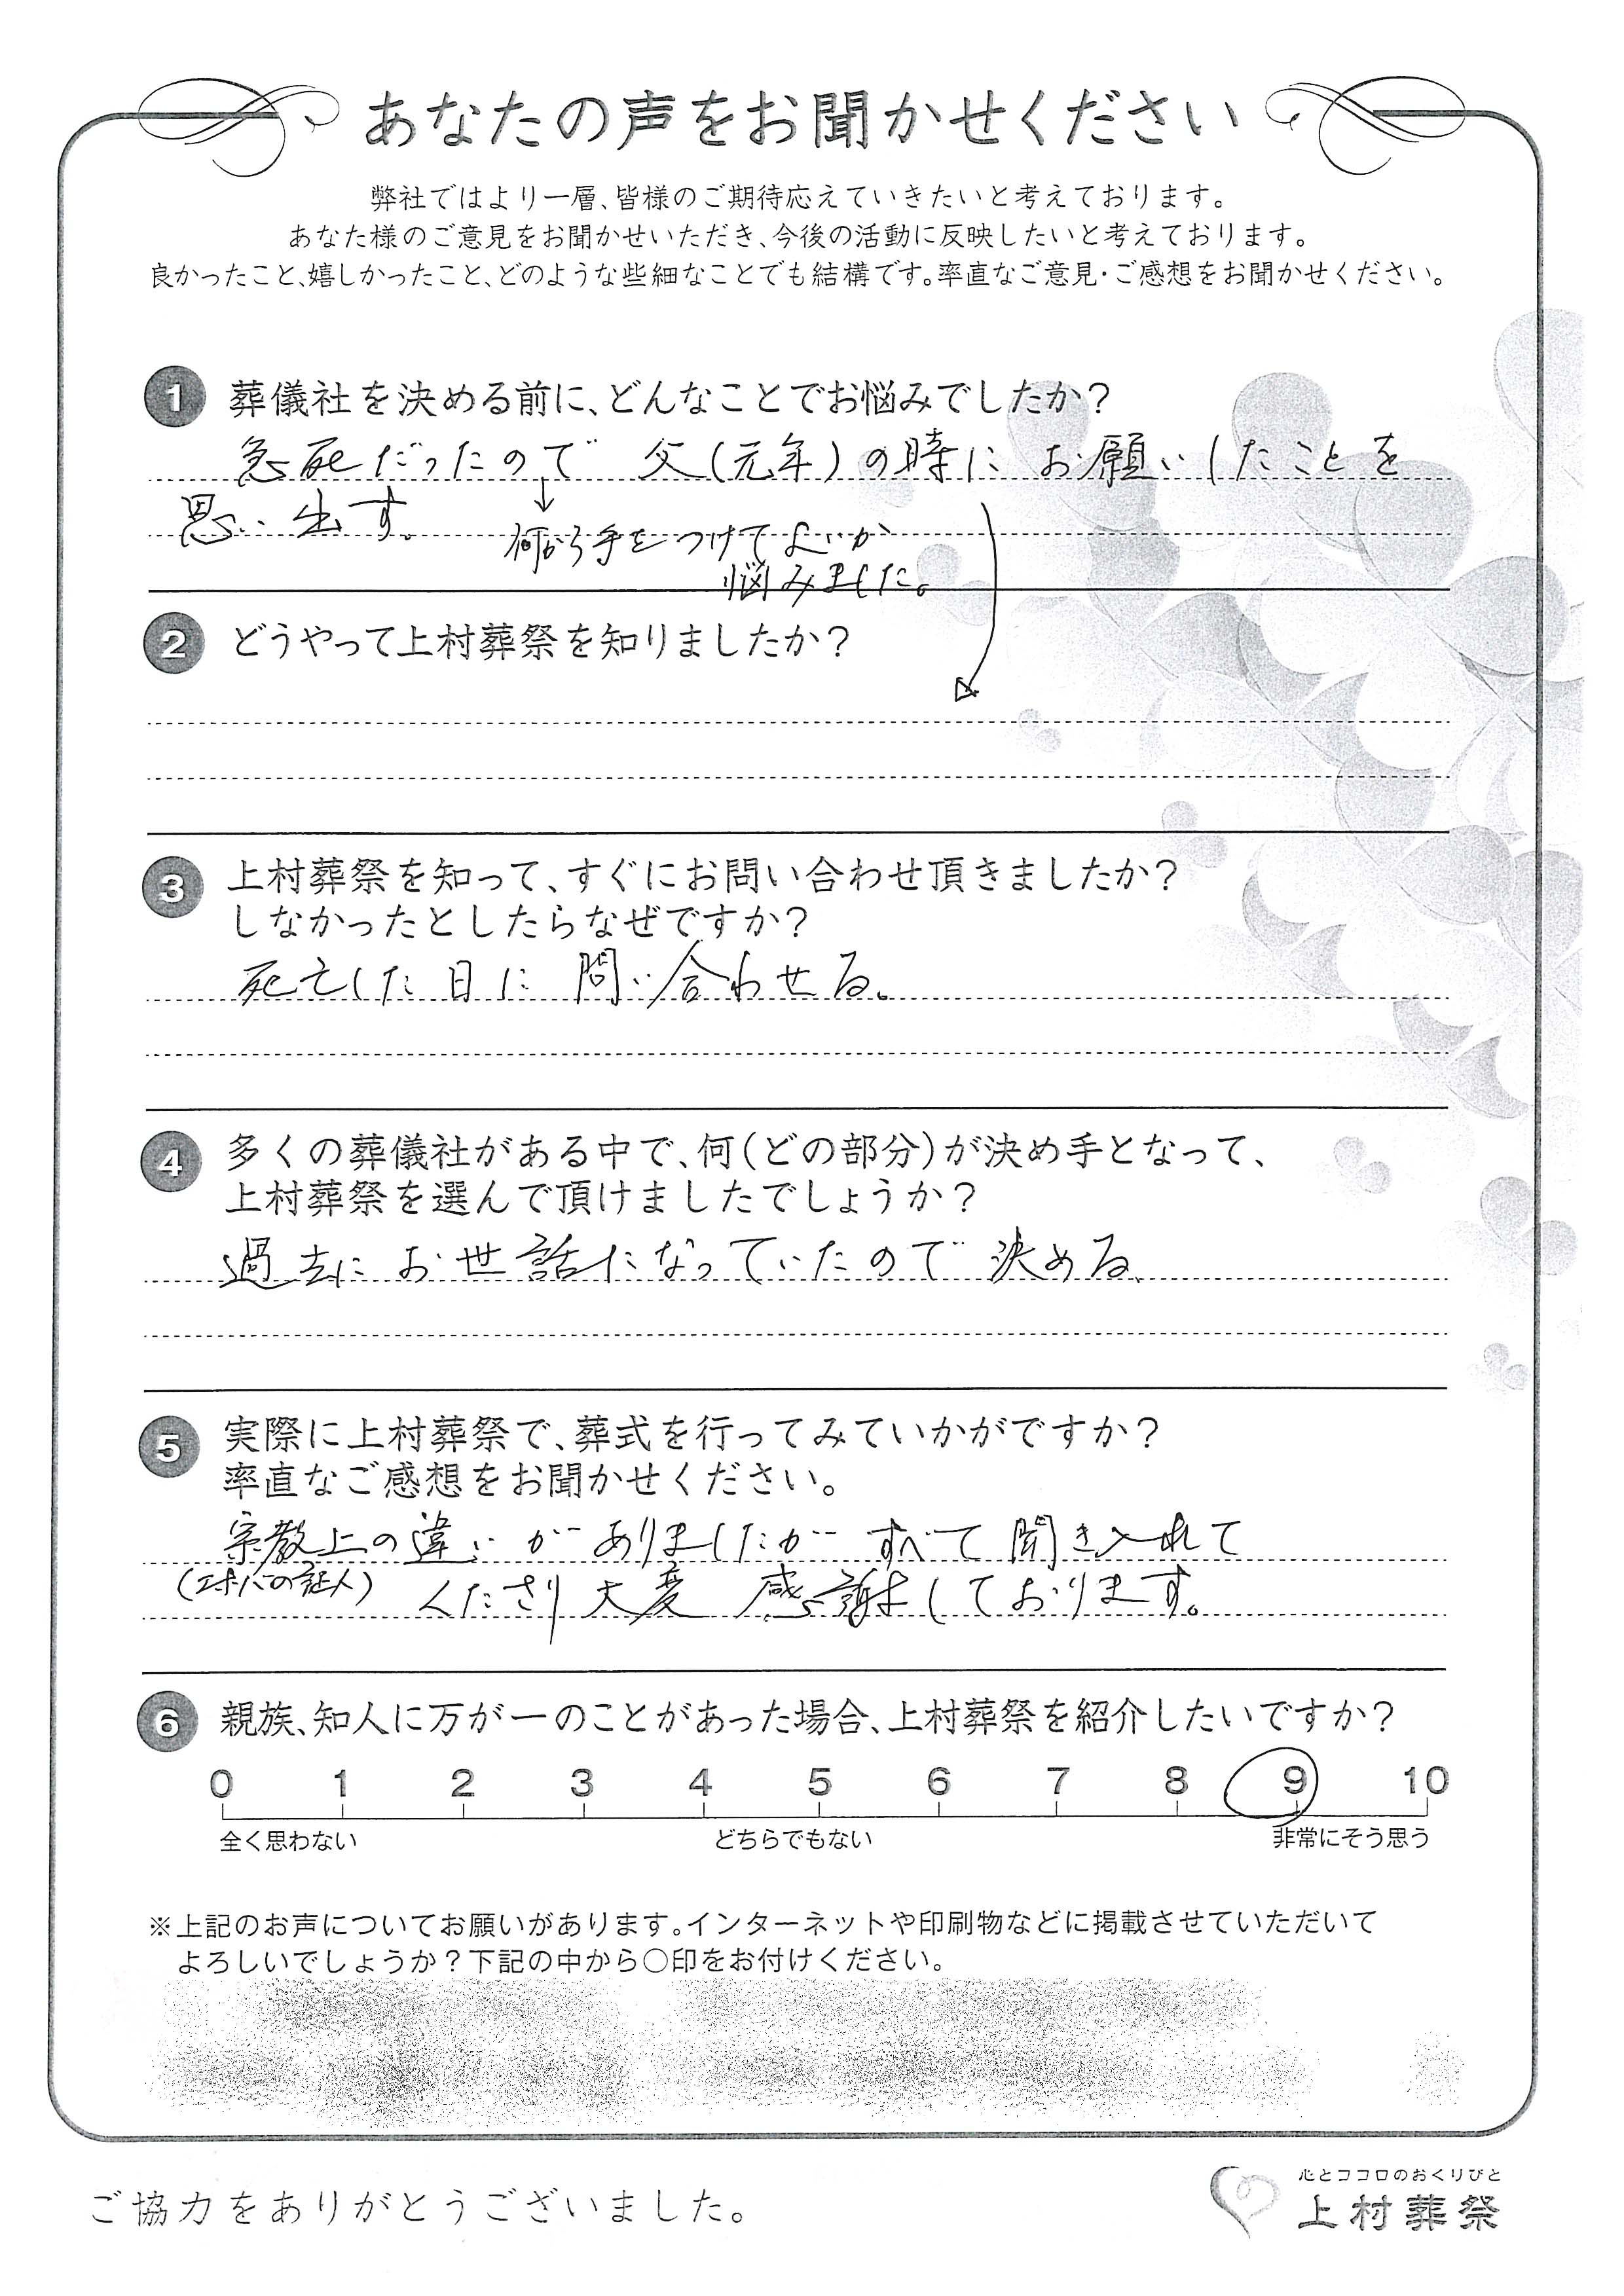 あなたの声をお聞かせください
弊社ではより一層、皆様のご期待応えていきたいと考えております。
あなた様のご意見をお聞かせいただき、今後の活動に反映したいと考えております。
良かったこと、嬉しかったこと、どのような些細なことでも結構です。率直なご意見・ご感想をお聞かせください。
1 葬儀社を決める前に、どんなことでお悩みでしたか?
急死だったので 父(元年)の時に お願いしたことを
思い出す。
↓
何から手をつけてよいか
悩みました。
2 どうやって上村葬祭を知りましたか?
3 上村葬祭を知って、すぐにお問い合わせ頂きましたか?
しなかったとしたらなぜですか?
死亡した日に 問い合わせる。
4 多くの葬儀社がある中で、何(どの部分)が決め手となって、
上村葬祭を選んで頂けましたでしょうか?
過去に お世話になっていたので 決める。
5 実際に上村葬祭で、葬式を行ってみていかがですか?
率直なご感想をお聞かせください。
宗教上の違いがありましたが すべて 聞き入れて
(エホバの証人) くださり 大変 感謝しております。
6 親族、知人に万が一のことがあった場合、上村葬祭を紹介したいですか?
0 1 2 3 4 5 6 7 8 9 10
全く思わない どちらでもない 非常にそう思う
※上記のお声についてお願いがあります。インターネットや印刷物などに掲載させていただいて
よろしいでしょうか?下記の中から○印をお付けください。
ご協力をありがとうございました。
心とココロのおくりびと
上村葬祭